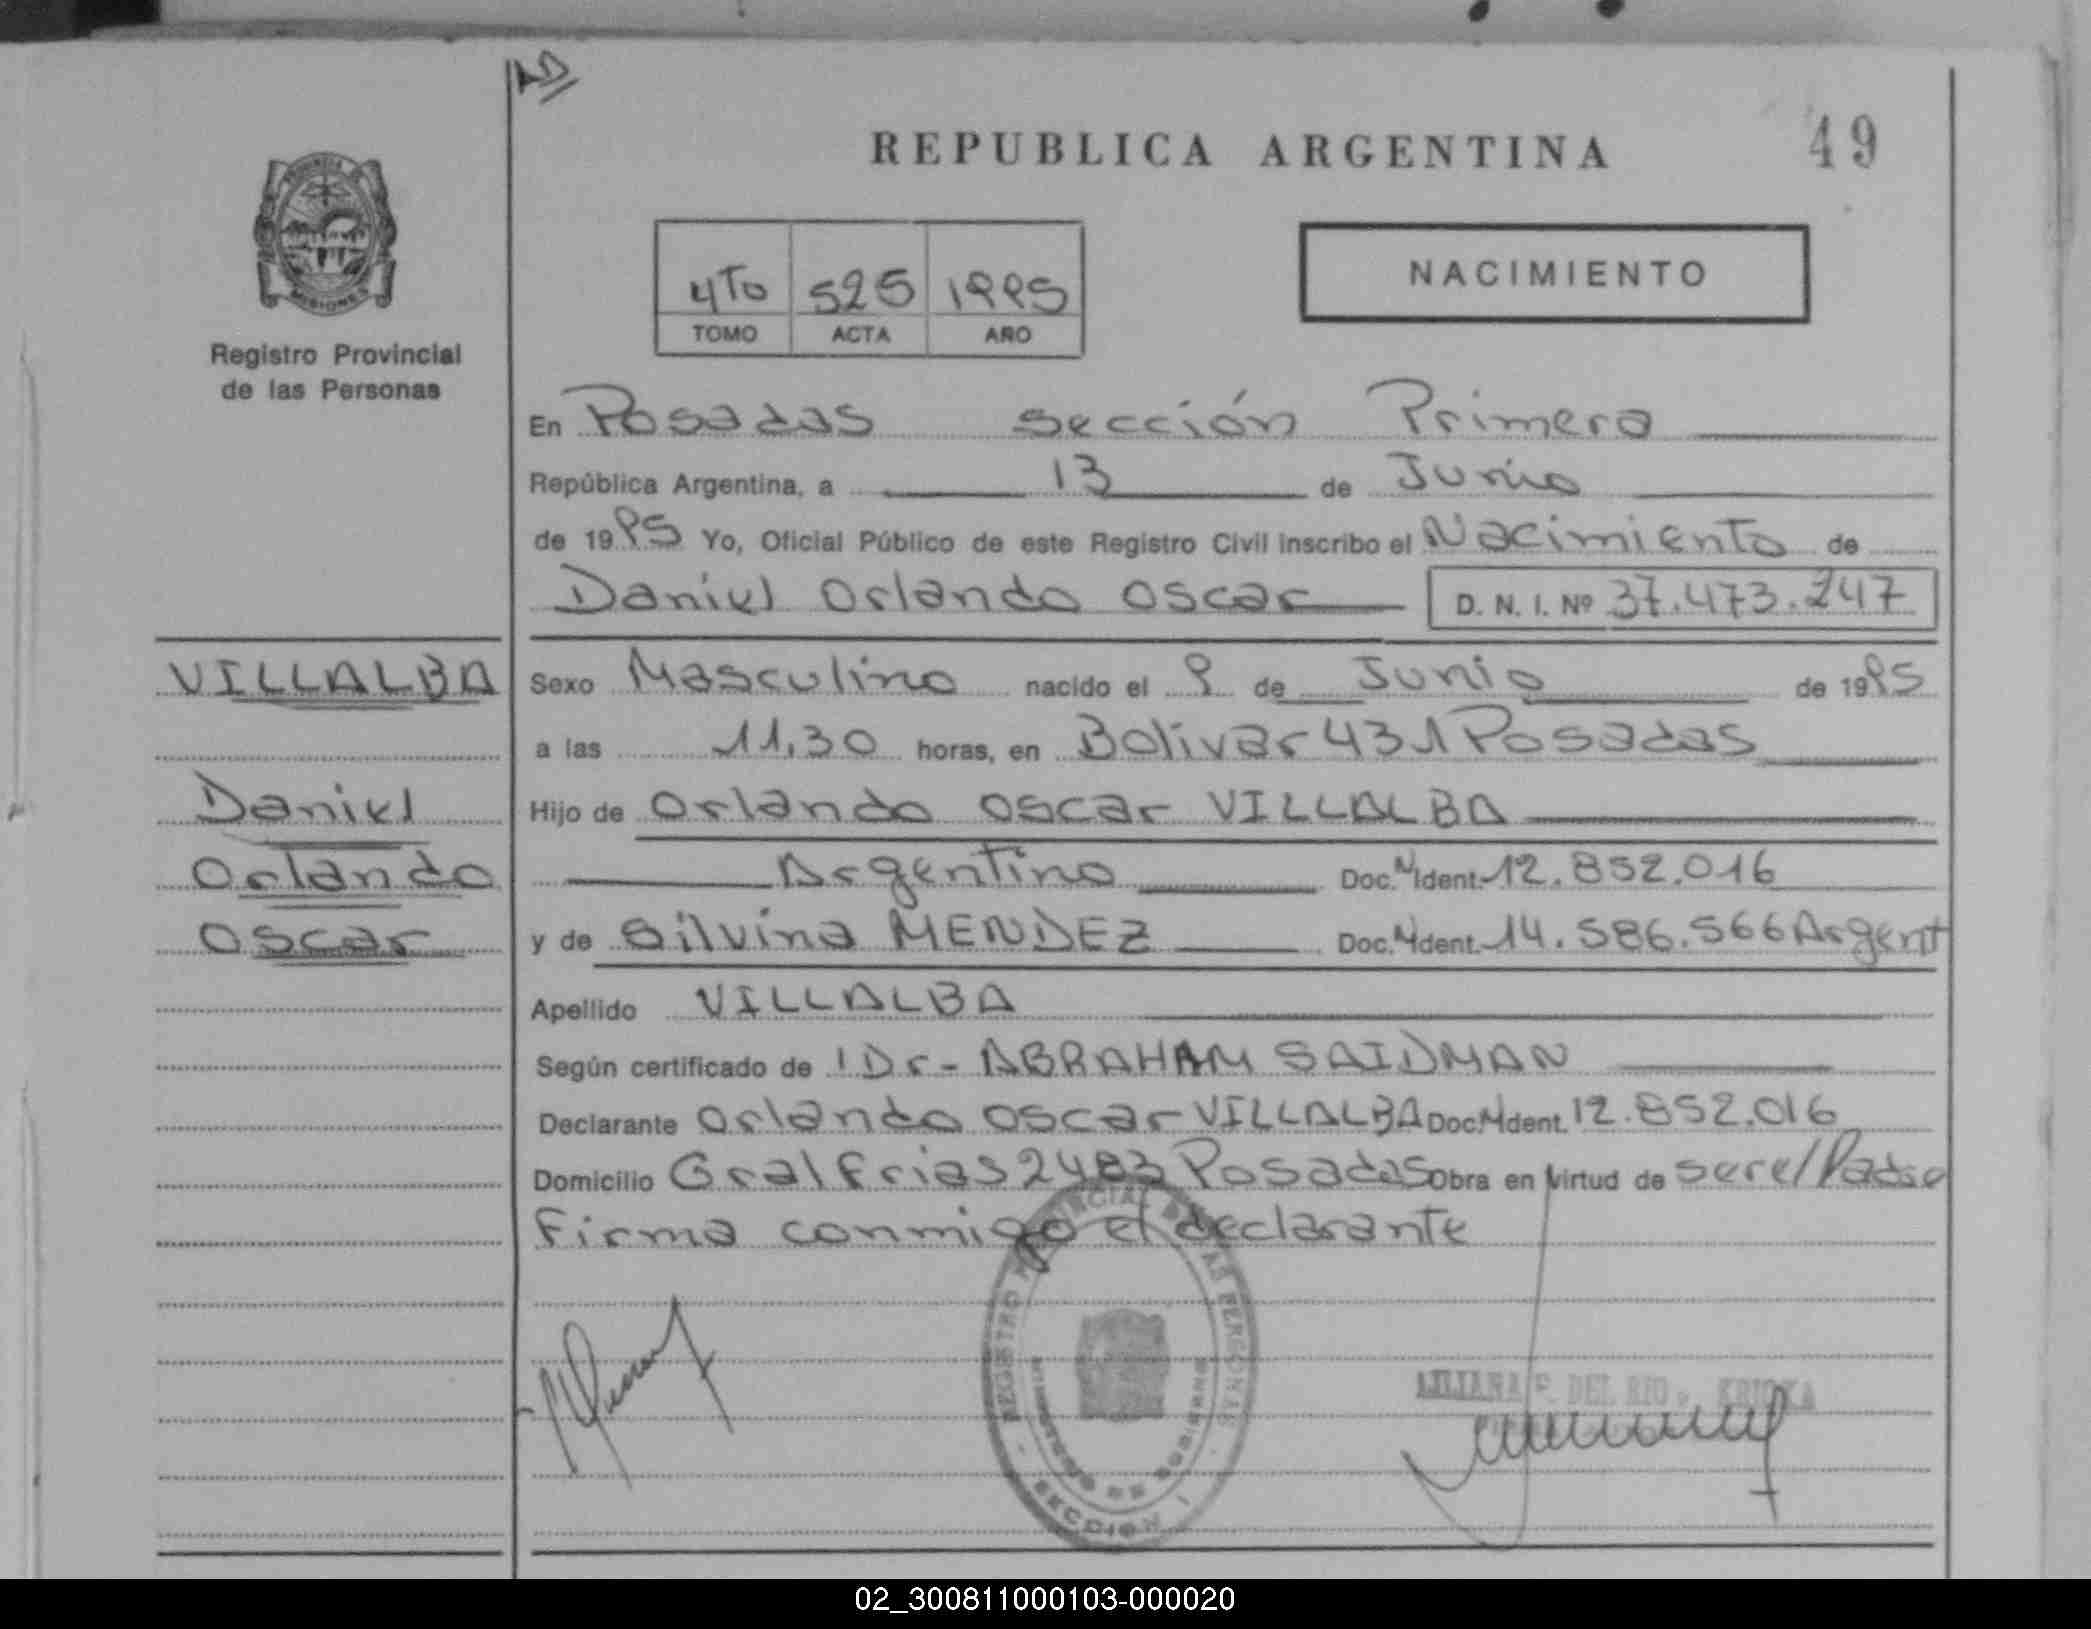 REPUBLICA ARGENTINA
49
PROVINCIA DE
MISIONES
Registro Provincial
de las Personas
4To 525 1995
TOMO ACTA AÑO
NACIMIENTO
En Posadas sección Primera
República Argentina, a 13 de Junio
de 1995 Yo, Oficial Público de este Registro Civil inscribo el Nacimiento de
Daniel Orlando Oscar D. N. I. Nº 37.473.247
VILLALBA
Daniel
Orlando
Oscar
Sexo Masculino nacido el 9 de Junio de 1995
a las 11,30 horas, en Bolivar 431 Posadas
Hijo de Orlando Oscar VILLALBA
Argentino Doc. N Ident. 12.852.016
y de Silvina MENDEZ Doc. N Ident. 14.586.566 Argent
Apellido VILLALBA
Según certificado de Dr- ABRAHAM SAIDMAN
Declarante Orlando Oscar VILLALBA Doc. N Ident. 12.852.016
Domicilio Gral Frias 2483 Posadas Obra en virtud de ser el Padre
Firma conmigo el declarante
REGISTRO PROVINCIAL DE LAS PERSONAS
SECCION I
LILIANA DEL RIO KRICKA
02_300811000103-000020